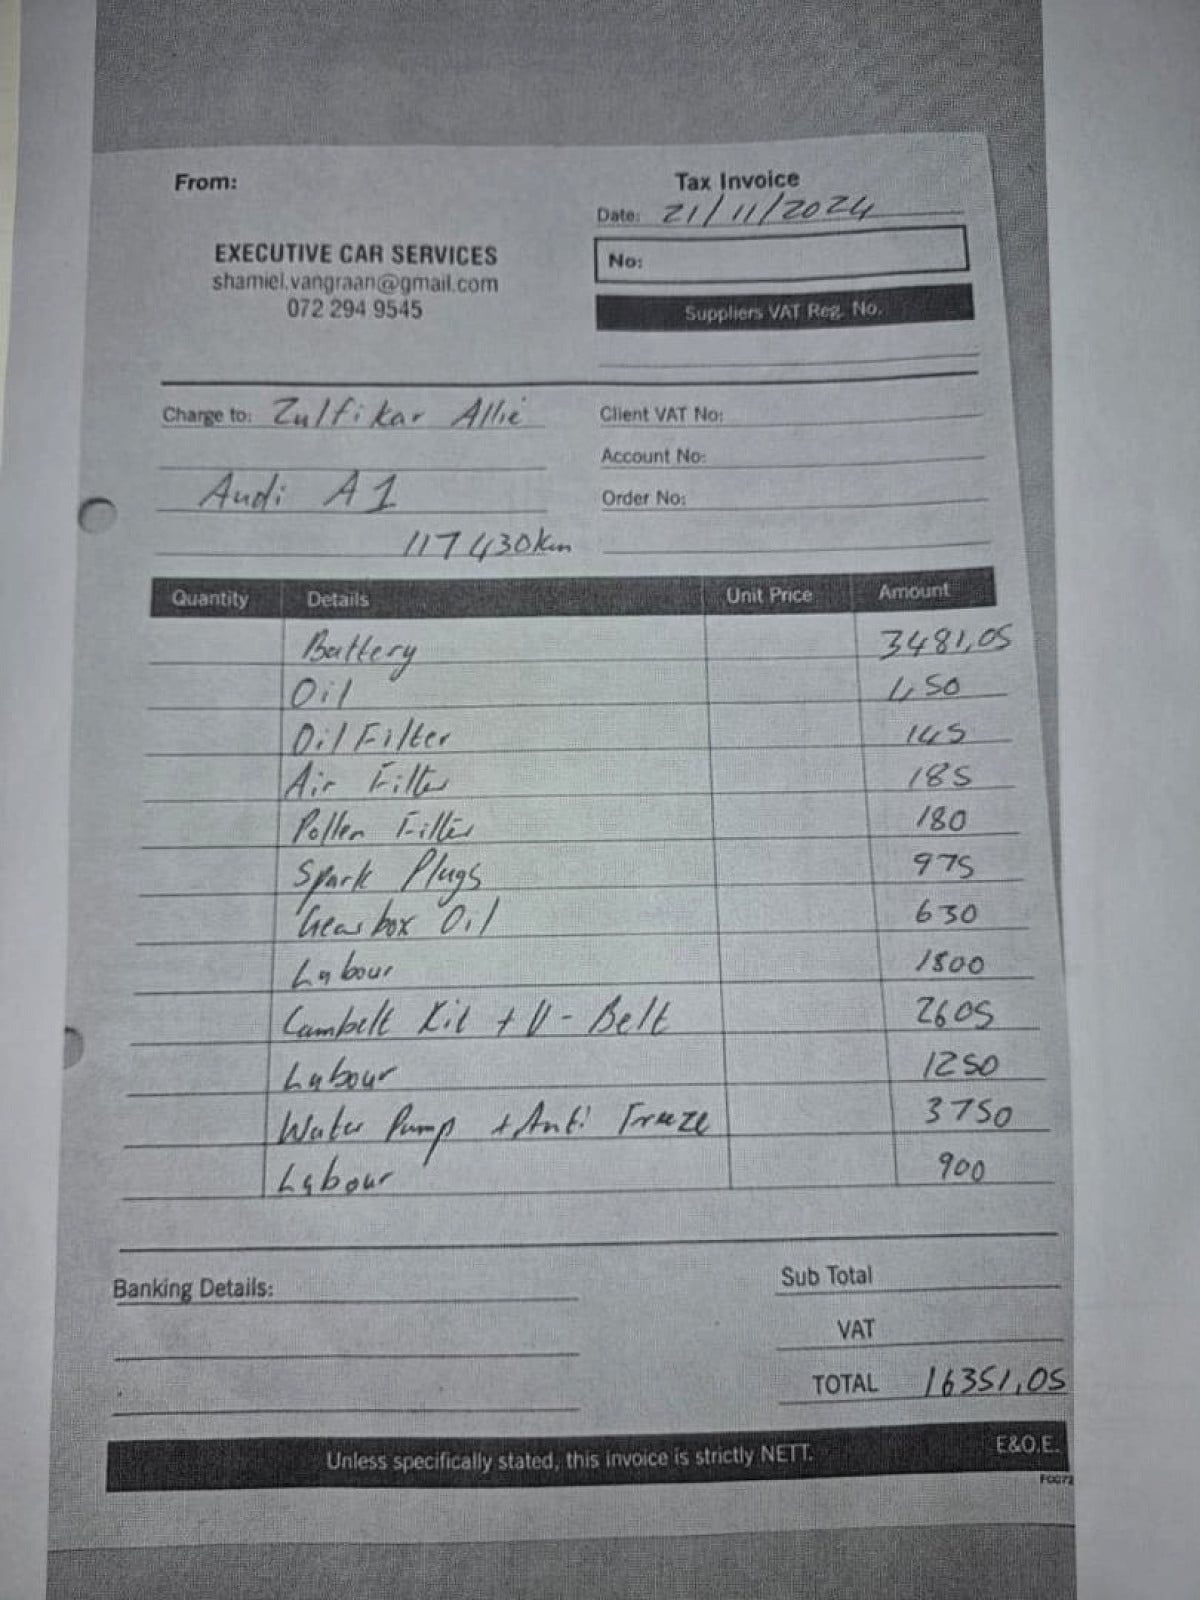 From:
Tax Invoice
Date: 21/11/2024
EXECUTIVE CAR SERVICES
shamiel.vangraan@gmail.com
072 294 9545
No:
Suppliers VAT Reg. No.
Charge to: Zulfikar Allie
Client VAT No:
Account No:
Audi A1
Order No:
117 430km
Quantity Details Unit Price Amount
Battery 3481,05
Oil 450
Oil Filter 145
Air Filter 185
Pollen Filter 180
Spark Plugs 975
Gearbox Oil 630
Labour 1800
Cambelt Kit + V-Belt 2605
Labour 1250
Water Pump + Anti Freeze 3750
Labour 900
Banking Details:
Sub Total
VAT
TOTAL 16351,05
Unless specifically stated, this invoice is strictly NETT.
E&O.E.